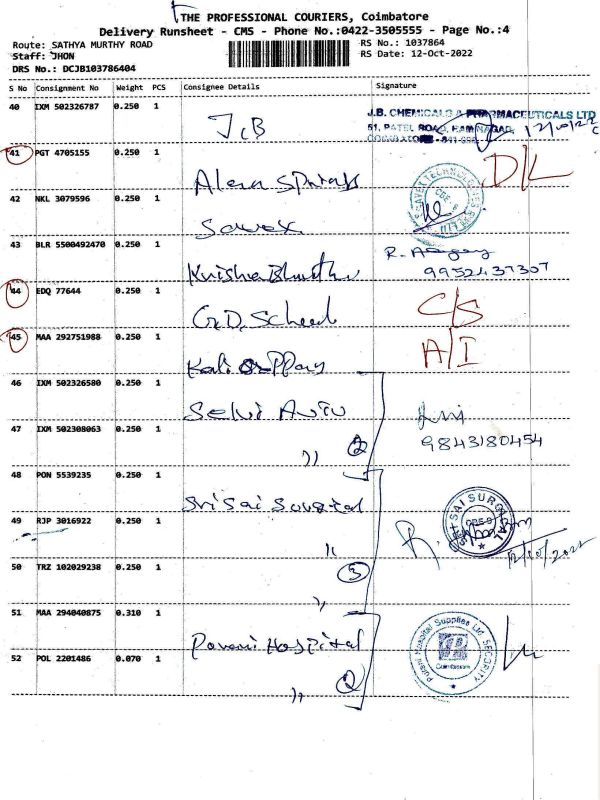 THE PROFESSIONAL COURIERS, Coimbatore
Delivery Runsheet - CMS - Phone No.:0422-3505555 - Page No.:4
Route: SATHYA MURTHY ROAD
Staff: JHON
DRS No.: DCJB103786404
RS No.: 1037864
RS Date: 12-Oct-2022
S No Consignment No Weight PCS Consignee Details Signature
40 IXM 502326787 0.250 1 J.B
J.B. CHEMICALS & PHARMACEUTICALS LTD
51, PATEL ROAD, RAM NAGAR,
COIMBATORE
41 PGT 4705155 0.250 1 D/L
42 NKL 3079596 0.250 1 Savex
43 BLR 5500492470 0.250 1
9952437307
44 EDQ 77644 0.250 1 G.D. School C/S
45 MAA 292751988 0.250 1 A/I
46 IXM 502326580 0.250 1 Selvi
47 IXM 502308063 0.250 1 ,, 2
9843180454
48 PON 5539235 0.250 1 Sri Sai Surgical
SRI SAI SURGICAL
49 RJP 3016922 0.250 1 ,,
12/10/2022
50 TRZ 102029238 0.250 1 ,, 3
51 MAA 294040875 0.310 1 Hospital
Hospital Supplies Ltd. SECURITY
Coimbatore
52 POL 2201486 0.070 1 ,, 2